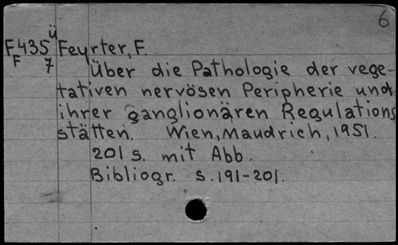 6
ü
F435 Feyrter, F.
F 7 Über die Pathologie der vege-
tativen nervösen Peripherie und
ihrer ganglionären Regulations
stätten. Wien, Maudrich, 1951.
201 s. mit Abb.
Bibliogr. s. 191-201.